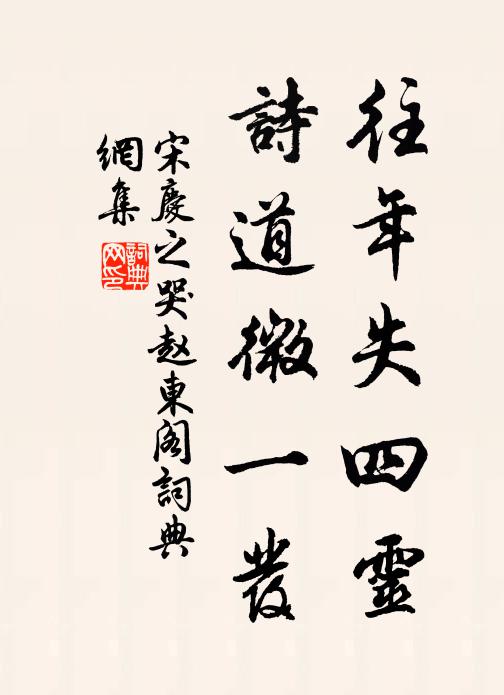 往年失四靈
詩道微一發
宋慶之哭赵東阁詞典
網集
詞典
网印